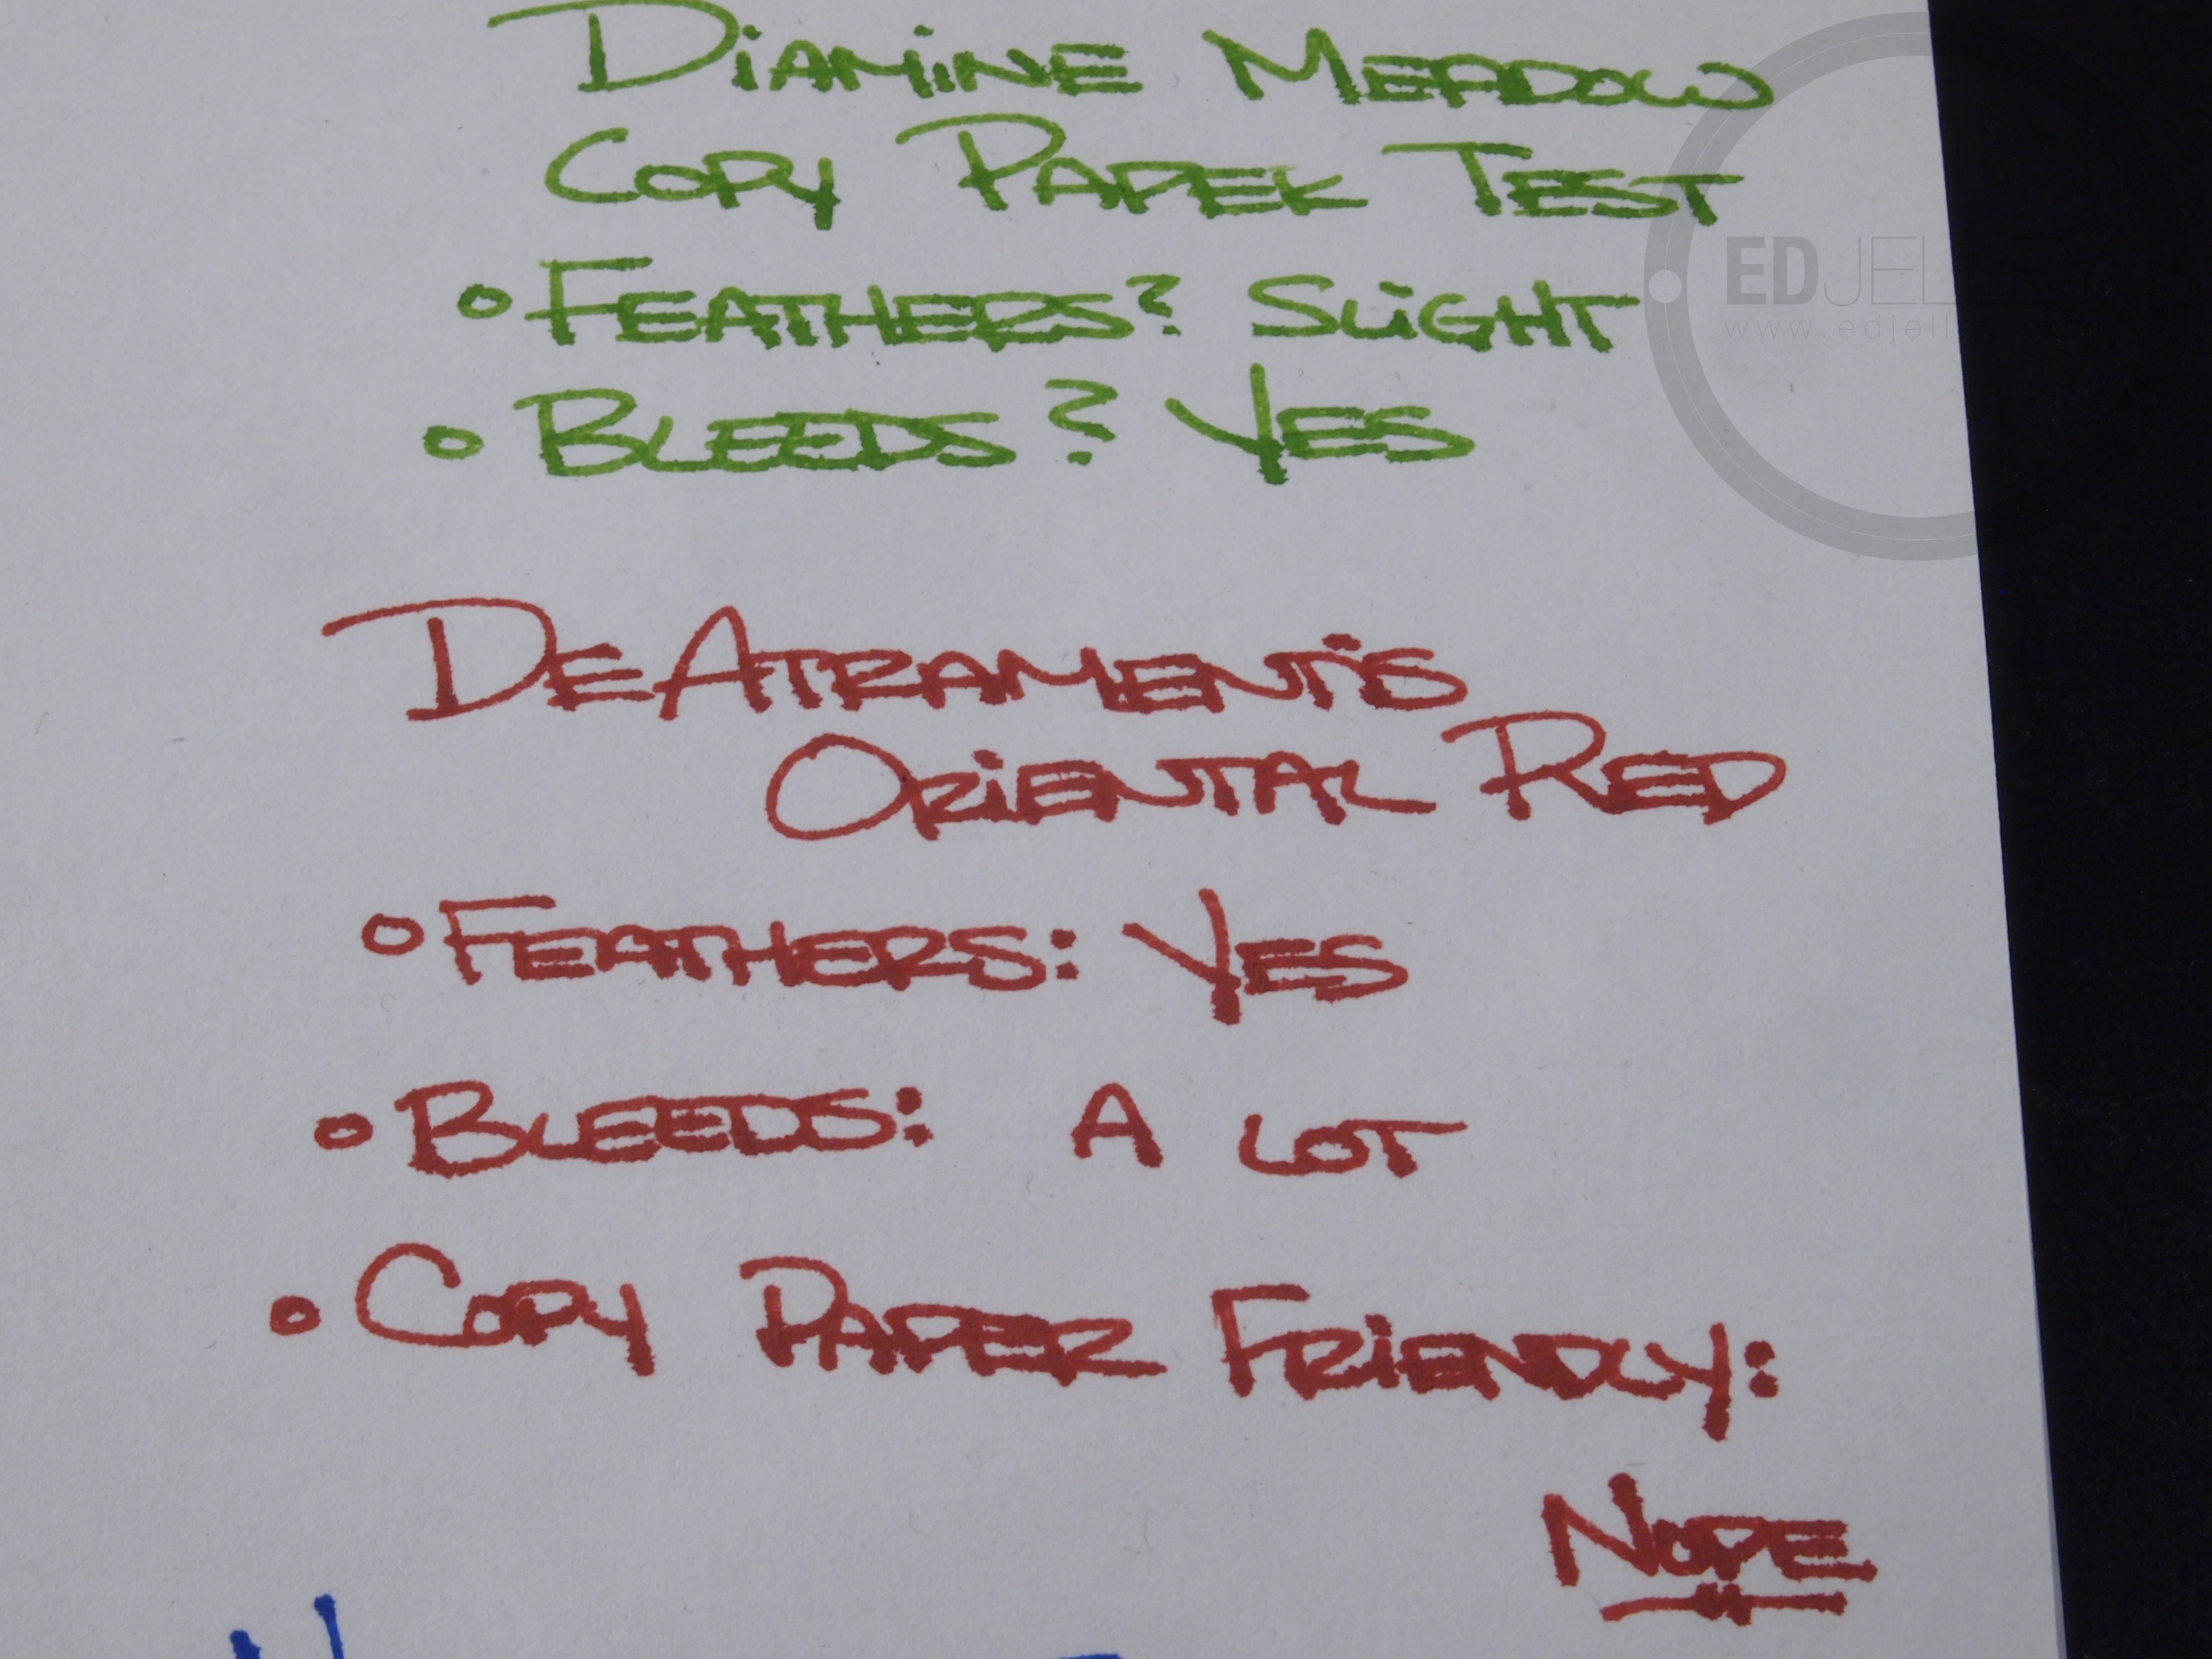 Diamine Meadow
Copy Paper Test
° Feathers? Slight
° Bleeds? Yes
EDJELL
www.edjell
DeAtramentis
Oriental Red
° Feathers: Yes
° Bleeds: A lot
° Copy Paper Friendly:
Nope